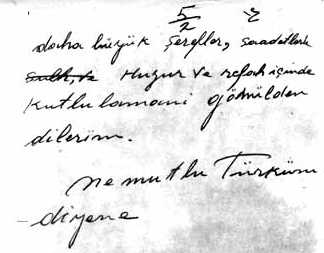 5/2
daha büyük şerefler, saadetlerle
sulh, ve Huzur ve refah içinde
Kutlulamanı gönülden
dilerim.
ne mutlu Türküm
diyene